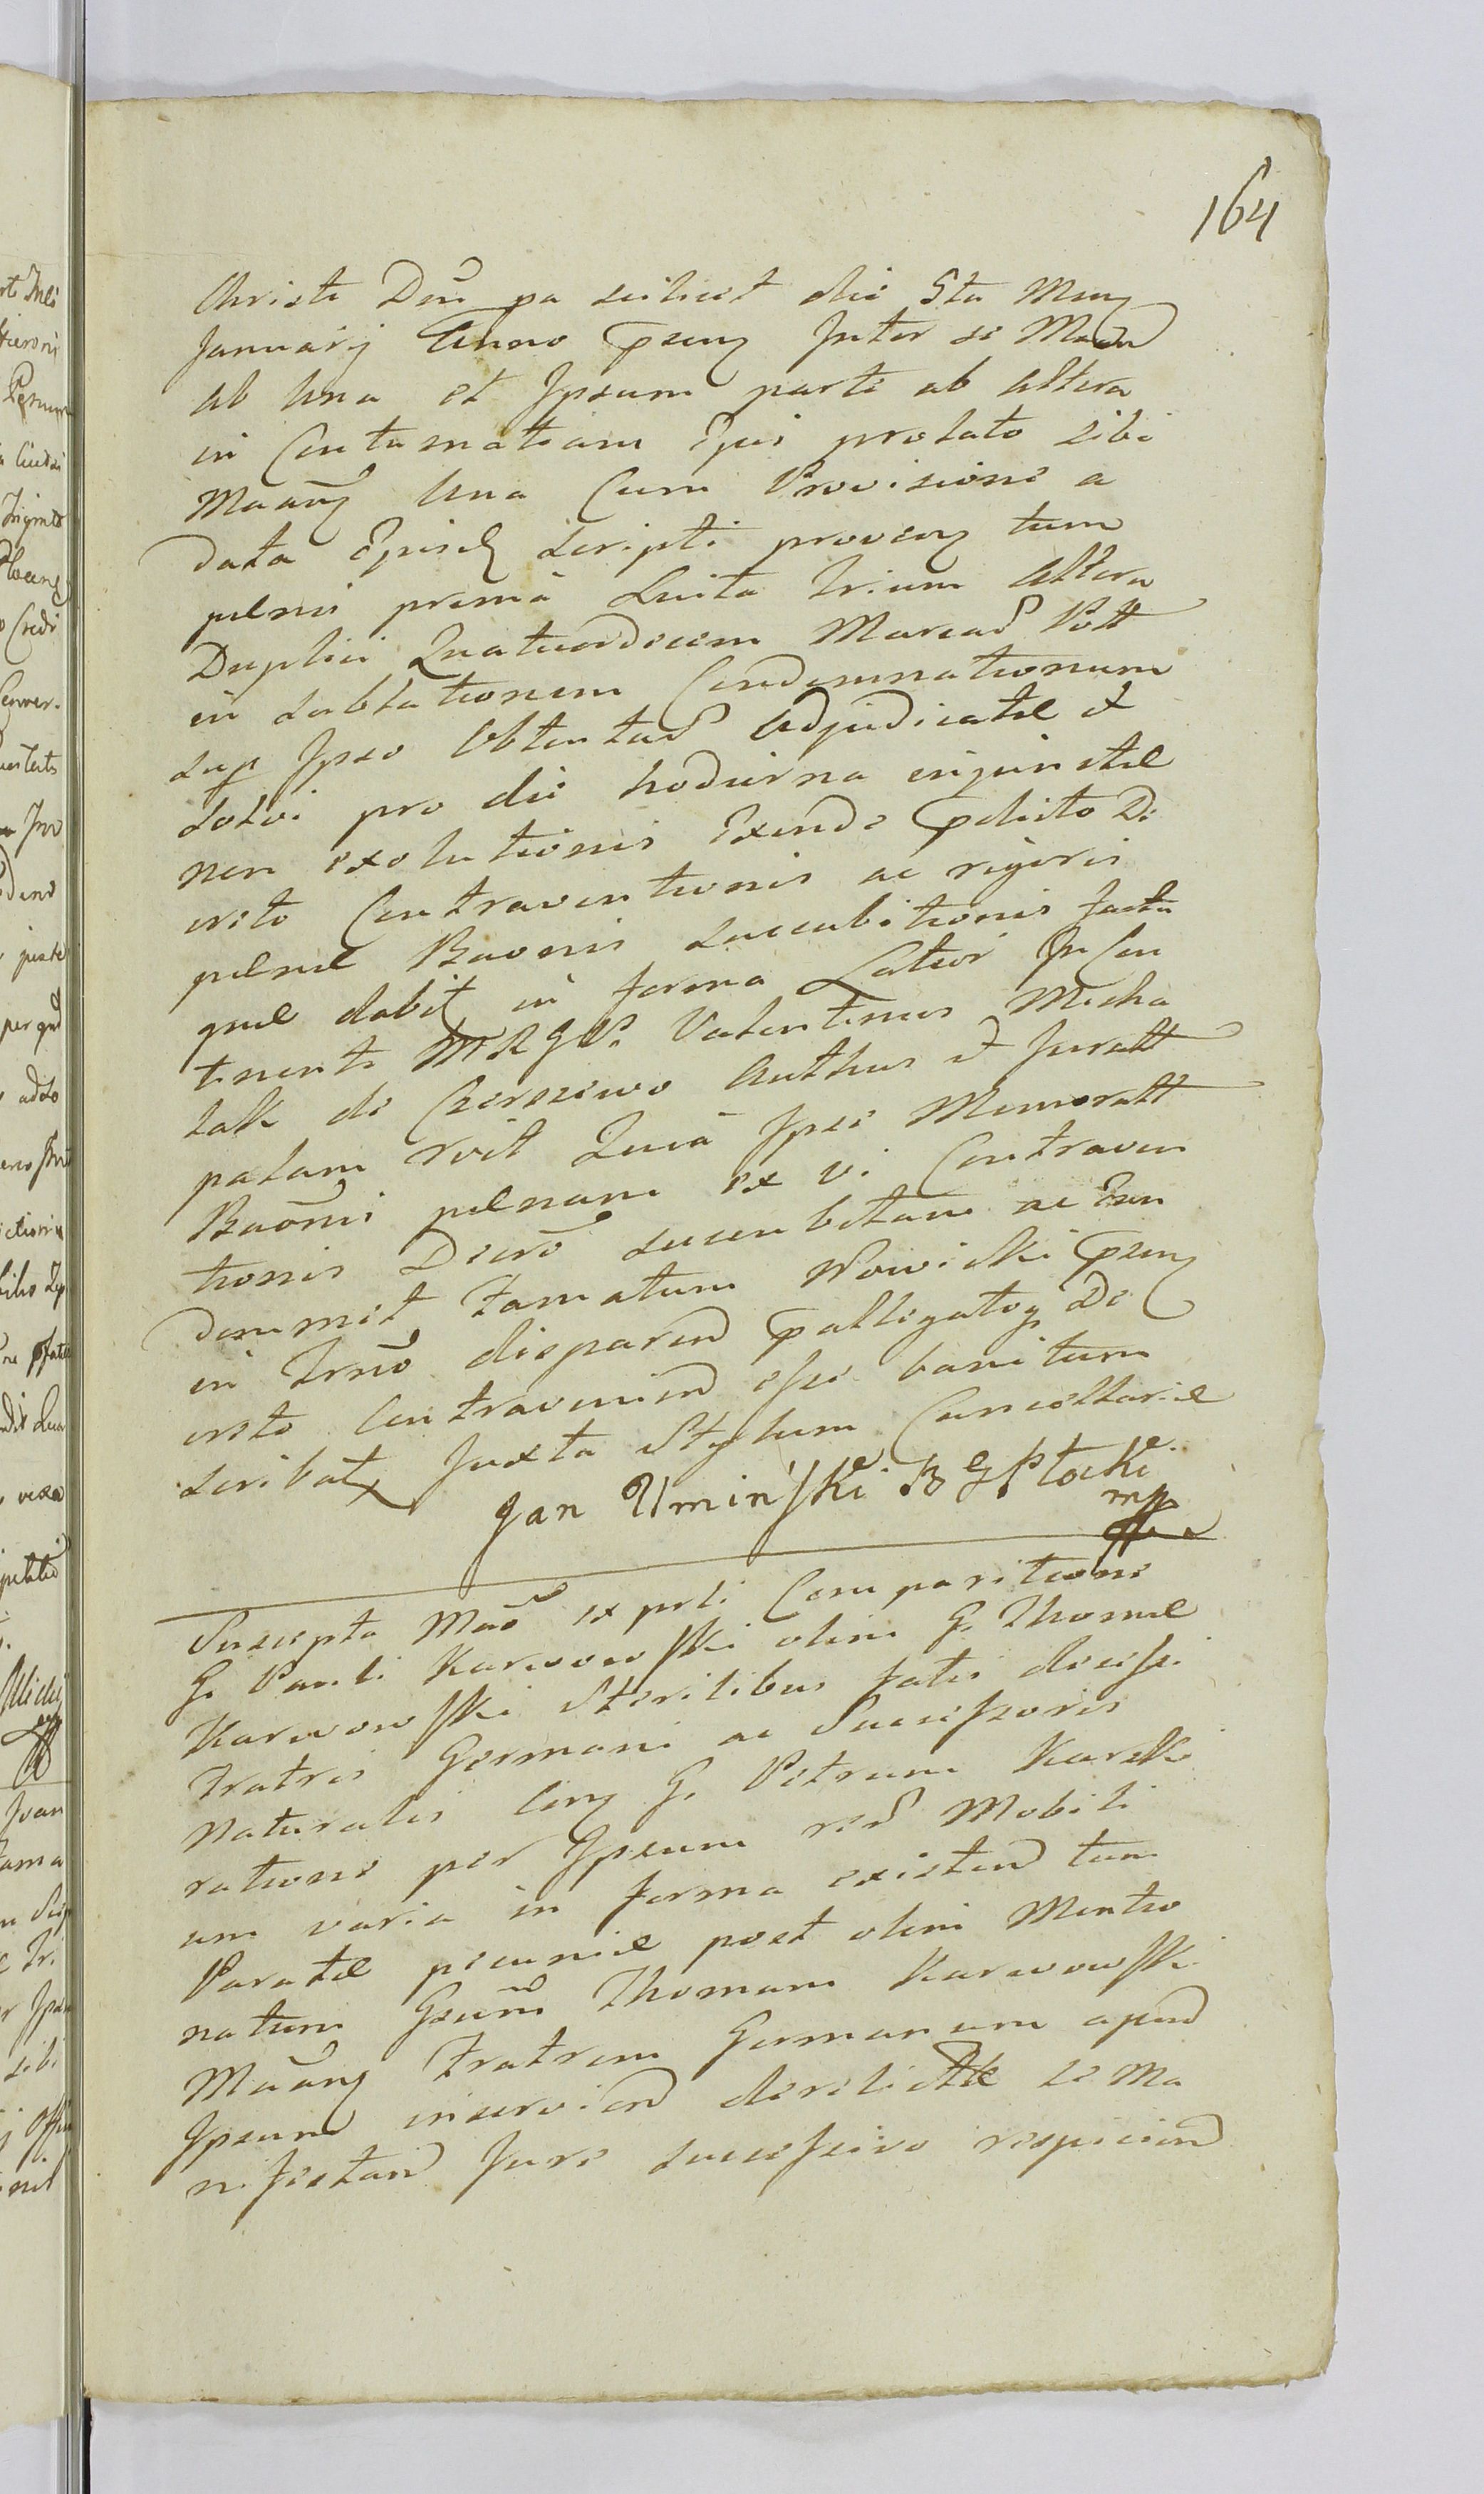 164
Christi Dni pa scilicet die 5ta Mens
Januarij Anno psens Inter se Maad
ab una et Ipsum parte ab altera
in Contumatiam Ejus prolato sibi
Maans Una Cum Provisione a
data Ejusd scripti provens tum
pelnis prima Luita trium altera
Duplici Quatuordecem Marcar Poll
in sublationem Condemnationum
sup Ipso obtentar adjudicatæ et
solvi pro die hodierna injunctæ
non exolutionis Exinde pdicto De
creto Contraventionis ac rigoris
pelnæ Bannis succubitionis facta
quæ dabit in forma Latior In Con
tinenti MRGP. Valentinus Micha
lak de Czerniewo Authus et Juratt
palam rvit Quia Ipse Memoratt
Baomi pelnam ex vi Contraven
tionis Decro succubitam ac Eun
demmet Famatum Nowicki psens
in Trno disparend palligatoq De
creto Contraveniend esse banitum
scribat Juxta Stylum Cancellariæ
Jan Umiński B G Płocki
mp
Suscepta Mao ex prli Comparitione
G. Pauli Karwowski olim G. Thomæ
Karwowski Sterilibus fatis decessi
Fratris Germani ac Successoris
Naturalis Cong G. Petrum Karski
ratione per Ipsum rer Mobili
um varia in forma existend tum
Paratæ pecuniæ post olim Mentio
natum Gsum Thomam Karwowski
Maang Fratrem Germanum apud
Ipsum inserviend derelictæ se ma
nifestand Jure successivo respiciend